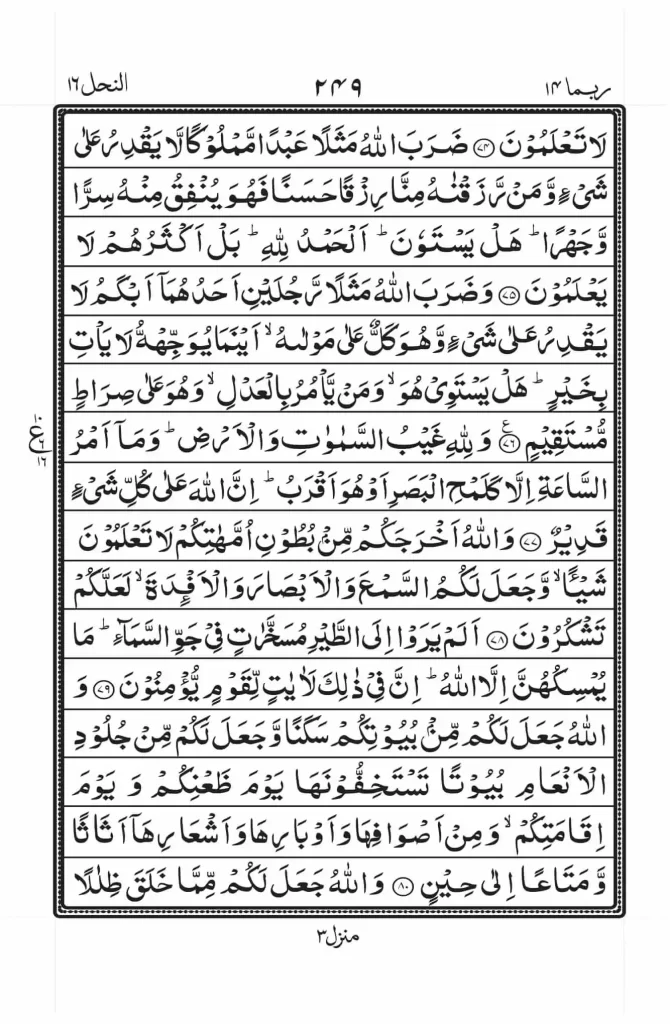 ربما ۱۴
۲۴۹
النحل ۱۶
لَا تَعۡلَمُوۡنَ ﴿۷۴﴾ ضَرَبَ اللّٰهُ مَثَلًا عَبۡدًا مَّمۡلُوۡكًا لَّا يَقۡدِرُ عَلٰى
شَىۡءٍ وَّمَنۡ رَّزَقۡنٰهُ مِنَّا رِزۡقًا حَسَنًا فَهُوَ يُنۡفِقُ مِنۡهُ سِرًّا
وَّجَهۡرًا‌ؕ هَلۡ يَسۡتَوٗنَ‌ؕ اَ لۡحَمۡدُ لِلّٰهِ‌ؕ بَلۡ اَكۡثَرُهُمۡ لَا
يَعۡلَمُوۡنَ ﴿۷۵﴾ وَضَرَبَ اللّٰهُ مَثَلًا رَّجُلَيۡنِ اَحَدُهُمَاۤ اَبۡكَمُ لَا
يَقۡدِرُ عَلٰى شَىۡءٍ وَّهُوَ كَلٌّ عَلٰى مَوۡلٰٮهُۙ اَيۡنَمَا يُوَجِّههُّ لَا يَاۡتِ
بِخَيۡرٍ‌ؕ هَلۡ يَسۡتَوِىۡ هُوَۙ وَمَنۡ يَّاۡمُرُ بِالۡعَدۡلِ‌ۙ وَهُوَ عَلٰى صِرَاطٍ
مُّسۡتَقِيۡمٍ ﴿۷۶﴾ ع وَلِلّٰهِ غَيۡبُ السَّمٰوٰتِ وَالۡاَرۡضِ‌ؕ وَمَاۤ اَمۡرُ
السَّاعَةِ اِلَّا كَلَمۡحِ الۡبَصَرِ اَوۡ هُوَ اَقۡرَبُ‌ؕ اِنَّ اللّٰهَ عَلٰى كُلِّ شَىۡءٍ
قَدِيۡرٌ ﴿۷۷﴾ وَاللّٰهُ اَخۡرَجَكُمۡ مِّنۡۢ بُطُوۡنِ اُمَّهٰتِكُمۡ لَا تَعۡلَمُوۡنَ
شَيۡـًٔـاۙ وَّجَعَلَ لَـكُمُ السَّمۡعَ وَالۡاَبۡصَارَ وَالۡاَفۡـِٕدَةَ‌ ۙ لَعَلَّكُمۡ
تَشۡكُرُوۡنَ ﴿۷۸﴾ اَلَمۡ يَرَوۡا اِلَى الطَّيۡرِ مُسَخَّرٰتٍ فِىۡ جَوِّ السَّمَآءِ ؕ مَا
يُمۡسِكُهُنَّ اِلَّا اللّٰهُ‌ؕ اِنَّ فِىۡ ذٰ لِكَ لَاٰيٰتٍ لِّقَوۡمٍ يُّؤۡمِنُوۡنَ ﴿۷۹﴾ وَ
اللّٰهُ جَعَلَ لَـكُمۡ مِّنۡۢ بُيُوۡتِكُمۡ سَكَنًا وَّجَعَلَ لَـكُمۡ مِّنۡ جُلُوۡدِ
الۡاَنۡعَامِ بُيُوۡتًا تَسۡتَخِفُّوۡنَهَا يَوۡمَ ظَعۡنِكُمۡ وَ يَوۡمَ
اِقَامَتِكُمۡ‌ۙ وَمِنۡ اَصۡوَافِهَا وَاَوۡبَارِهَا وَاَشۡعَارِهَاۤ اَثَاثًا
وَّمَتَاعًا اِلٰى حِيۡنٍ ﴿۸۰﴾ وَاللّٰهُ جَعَلَ لَـكُمۡ مِّمَّا خَلَقَ ظِلٰلًا
۱۰
ع ۶
۱۶
منزل ۳